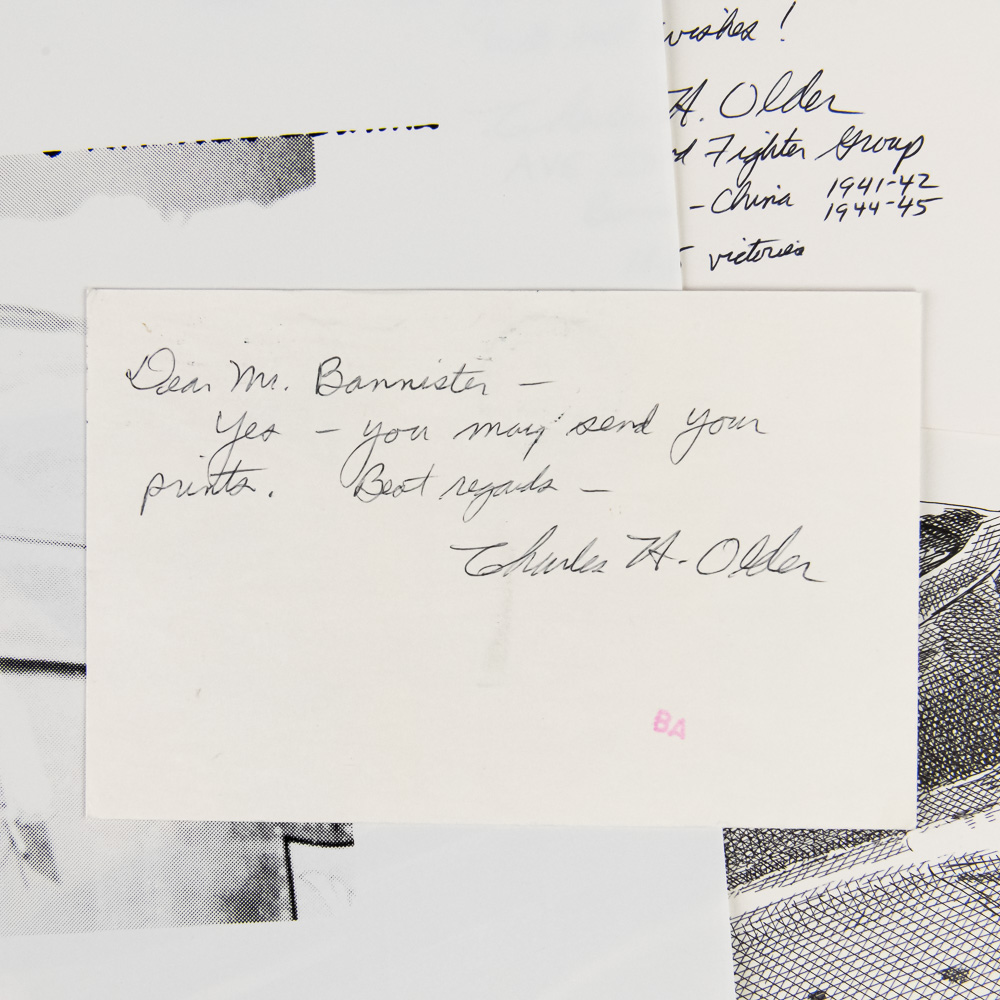 wishes!
H. Older
Fighter Group
- China 1941-42
1944-45
victories
Dear Mr. Bannister -
Yes - you may send your
prints. Best regards -
Charles H. Older
BA